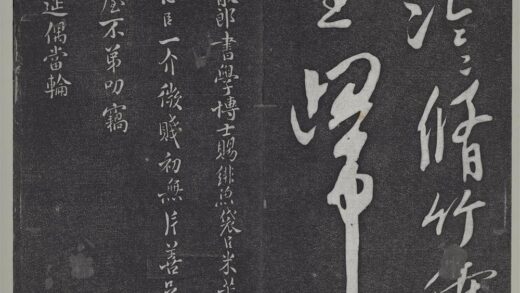 泠〻脩竹待
王歸
郎書學博士賜緋魚袋臣米芾
臣一介微賤初無片善
不第叨竊
偶當輪